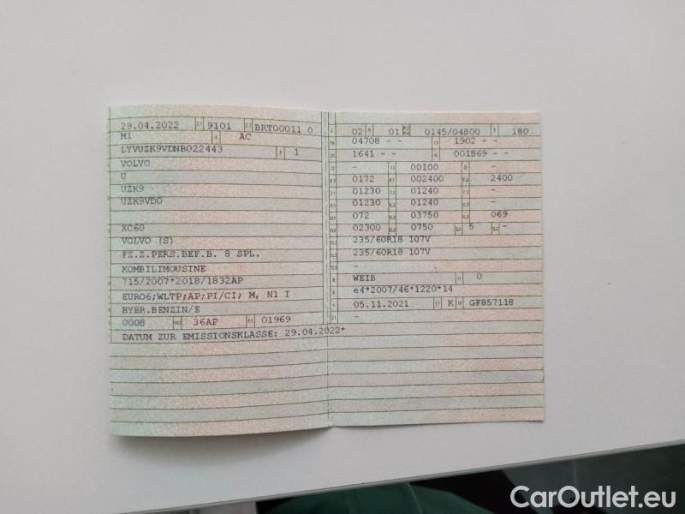 29.04.2022 9101 BRT00011 0
M1 AC
LYVUZK9VDNB022443 1
VOLVO
U
UZK9
UZK9VD0
XC60
VOLVO (S)
FZ.Z.PERS.BEF.B. 8 SPL.
KOMBILIMOUSINE
715/2007*2018/1832AP
EURO6;WLTP;AP;PI/CI; M, N1 I
HYBR.BENZIN/E
0008 36AP 01969
DATUM ZUR EMISSIONSKLASSE: 29.04.2022*
02 01 0145/04800 180
04708 - - 1902 - -
1641 - - 001869 - -
- 00100 -
0172 002400 2400
01230 01240 -
01230 01240 -
072 03750 069
02300 0750 5 - -
235/60R18 107V
235/60R18 107V
-
-
WEIB 0
e4*2007/46*1220*14
05.11.2021 K GF857118
-
CarOutlet.eu